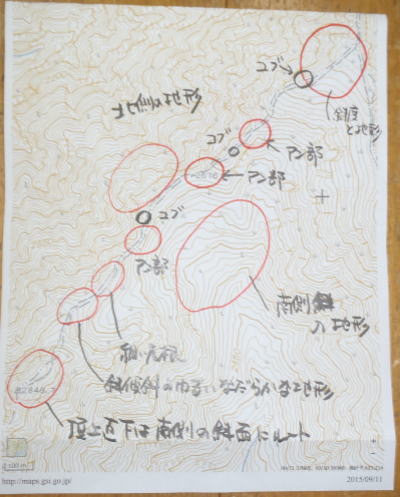 コブ
北側の地形
斜度
と地形
コブ
アン部
アン部
コブ
アン部
南側斜
の地形
細い尾根
斜傾斜のゆるいなだらかな地形
頂上直下は南側の斜面にルート
http://maps.gsi.go.jp/
2015/09/11